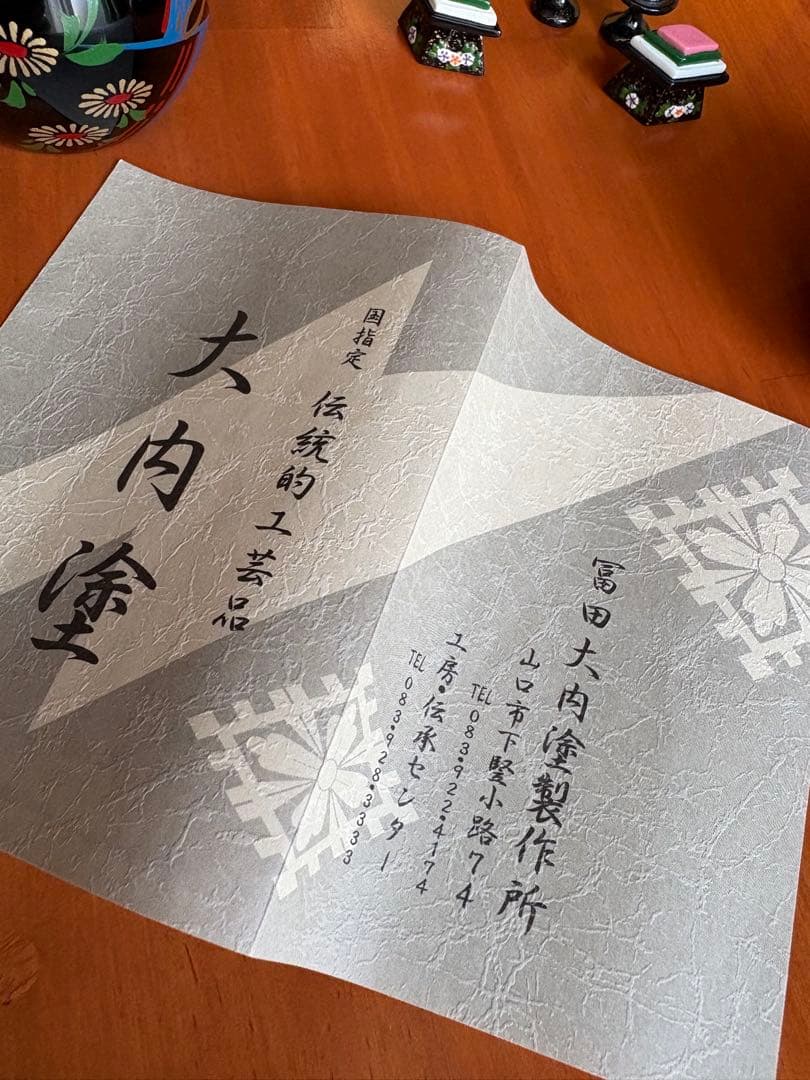 国指定 伝統的工芸品
大内塗
冨田大内塗製作所
山口市下竪小路74
TEL 083•922•4174
工房•伝承センター
TEL 083•928•3333